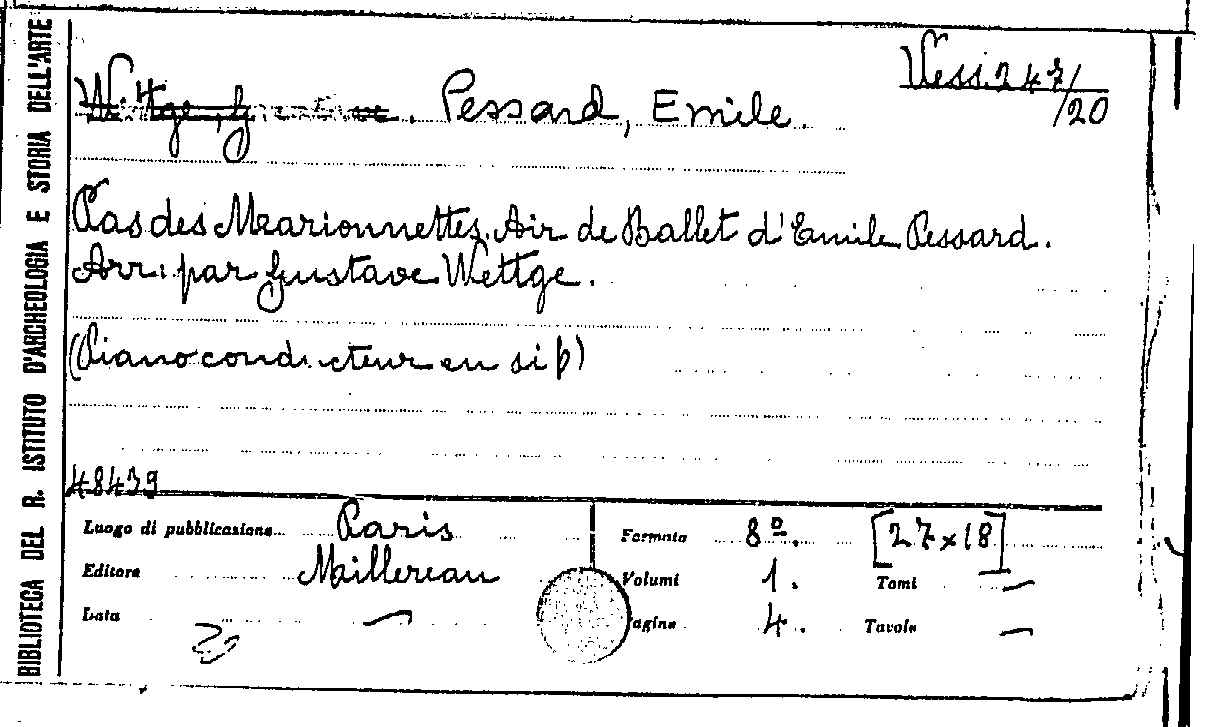 BIBLIOTECA DEL R. ISTITUTO D'ARCHEOLOGIA E STORIA DELL'ARTE
Vess. 247/20
Wettge, Gustave. Pessard, Emile.
Pas des Marionnettes. Air de Ballet d'Emile Pessard.
Arr. par Gustave Wettge.
(Piano conducteur en si b)
48439
Luogo di pubblicazione Paris
Editore Maillereau
Data —
Formato 8º. [27x18]
Volumi 1. Tomi —
Pagine 4. Tavole —